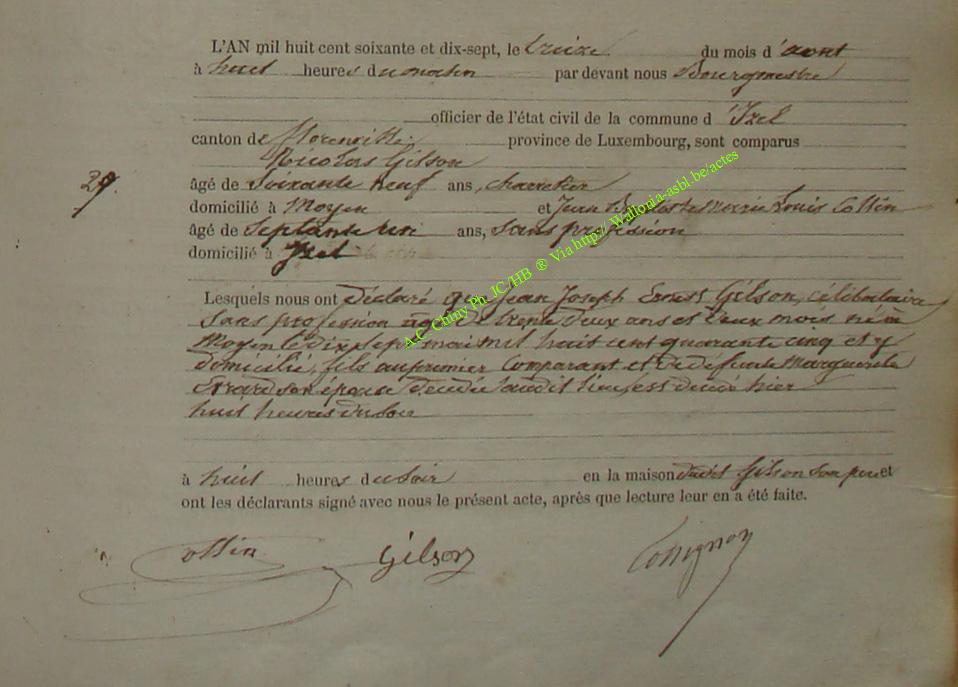 L'AN mil huit cent soixante et dix-sept, le treize du mois d'aout
à huit heures du matin par devant nous Bourgmestre
officier de l'état civil de la commune d'Izel
canton de Florenville province de Luxembourg, sont comparus
Nicolas Gilson
29.
âgé de soixante neuf ans, charretier
domicilié à Moyen et Jean Louis Collin
âgé de septante un ans, sans profession
domicilié à Izel
Lesquels nous ont déclaré que Jean Joseph Ernest Gilson, célibataire
sans profession âgé de trente deux ans et deux mois né à
Moyen le dix sept mai mil huit cent quarante cinq et y
domicilié, fils au premier comparant et de défunte Marguerite
son épouse décédée audit lieu, est décédé hier
huit heures du soir
à huit heures du soir en la maison dudit Gilson son père et
ont les déclarants signé avec nous le présent acte, après que lecture leur en a été faite.
Collin Gilson Cossignon
A.C. Chiny Ph. JC/HB ® Via http://Wallonia-asbl.be/actes